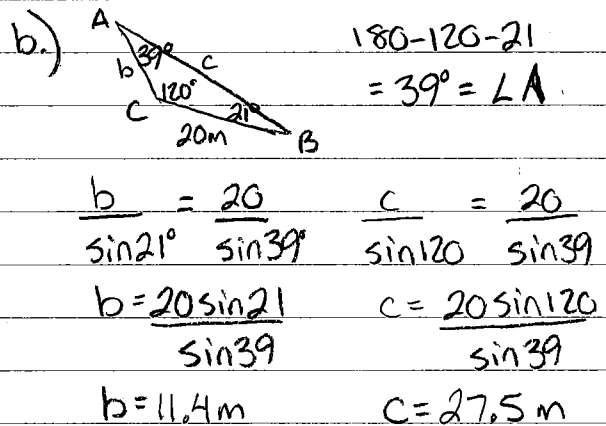 b.)
A
39°
b
c
120°
C
21°
20m
B
180-120-21
= 39° = ∠A.
b/sin21° = 20/sin39°
b = 20sin21/sin39
b = 11.4m
c/sin120 = 20/sin39
c = 20sin120/sin39
c = 27.5m